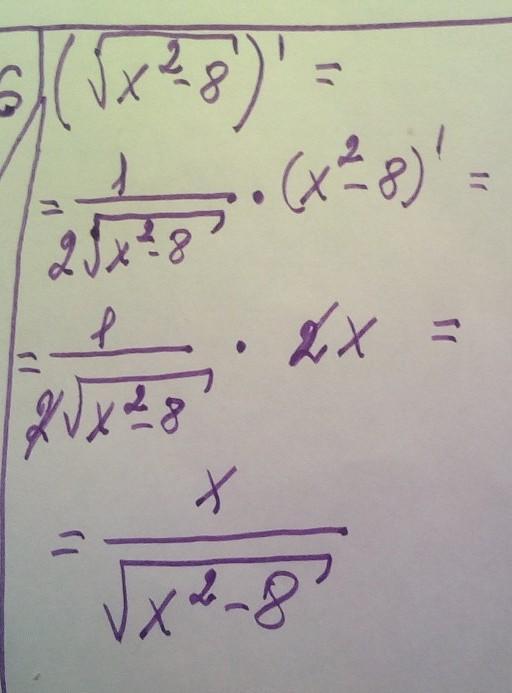 б) (√(x²-8))' =
= 1/(2√(x²-8)) · (x²-8)' =
= 1/(2√(x²-8)) · 2x =
= x/√(x²-8)